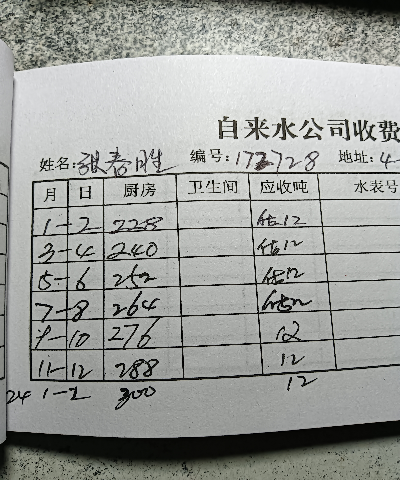 自来水公司收费
姓名:张春胜 编号:172728 地址:4-
月 日 厨房 卫生间 应收吨 水表号
1-2 228 估12
3-4 240 估12
5-6 252 估12
7-8 264 估12
9-10 276 12
11-12 288 12
24 1-2 300 12